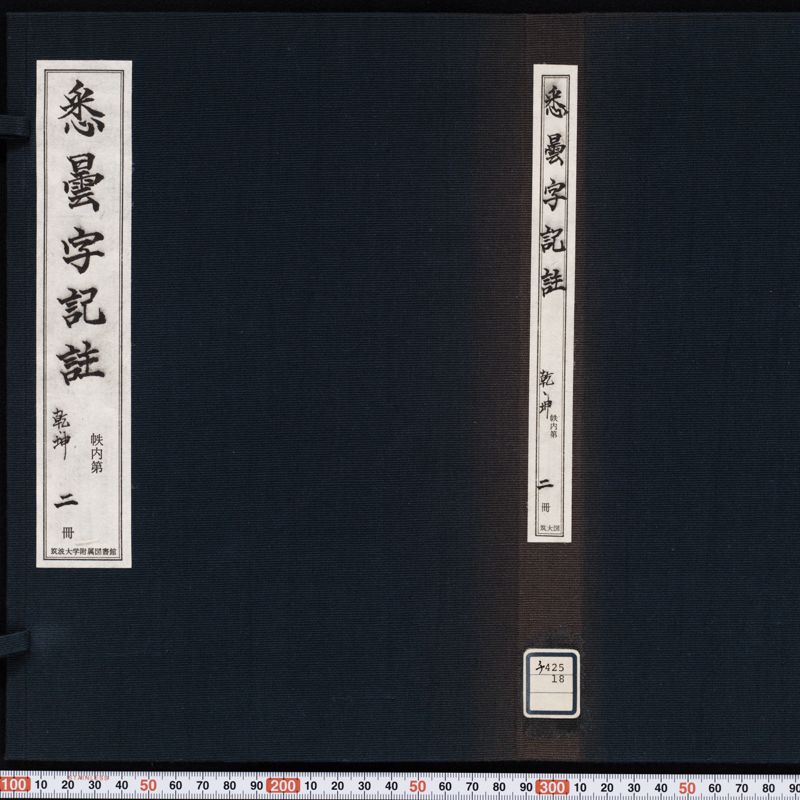 悉曇字記註
乾坤
帙内第
二
冊
筑波大学附属図書館
悉曇字記註
乾、坤
帙内第
二
冊
筑大図
チ425
18
100 10 20 30 40 50 60 70 80 90 200 10 20 30 40 50 60 70 80 90 300 10 20 30 40 50 60 70 80 90
STAINLESS